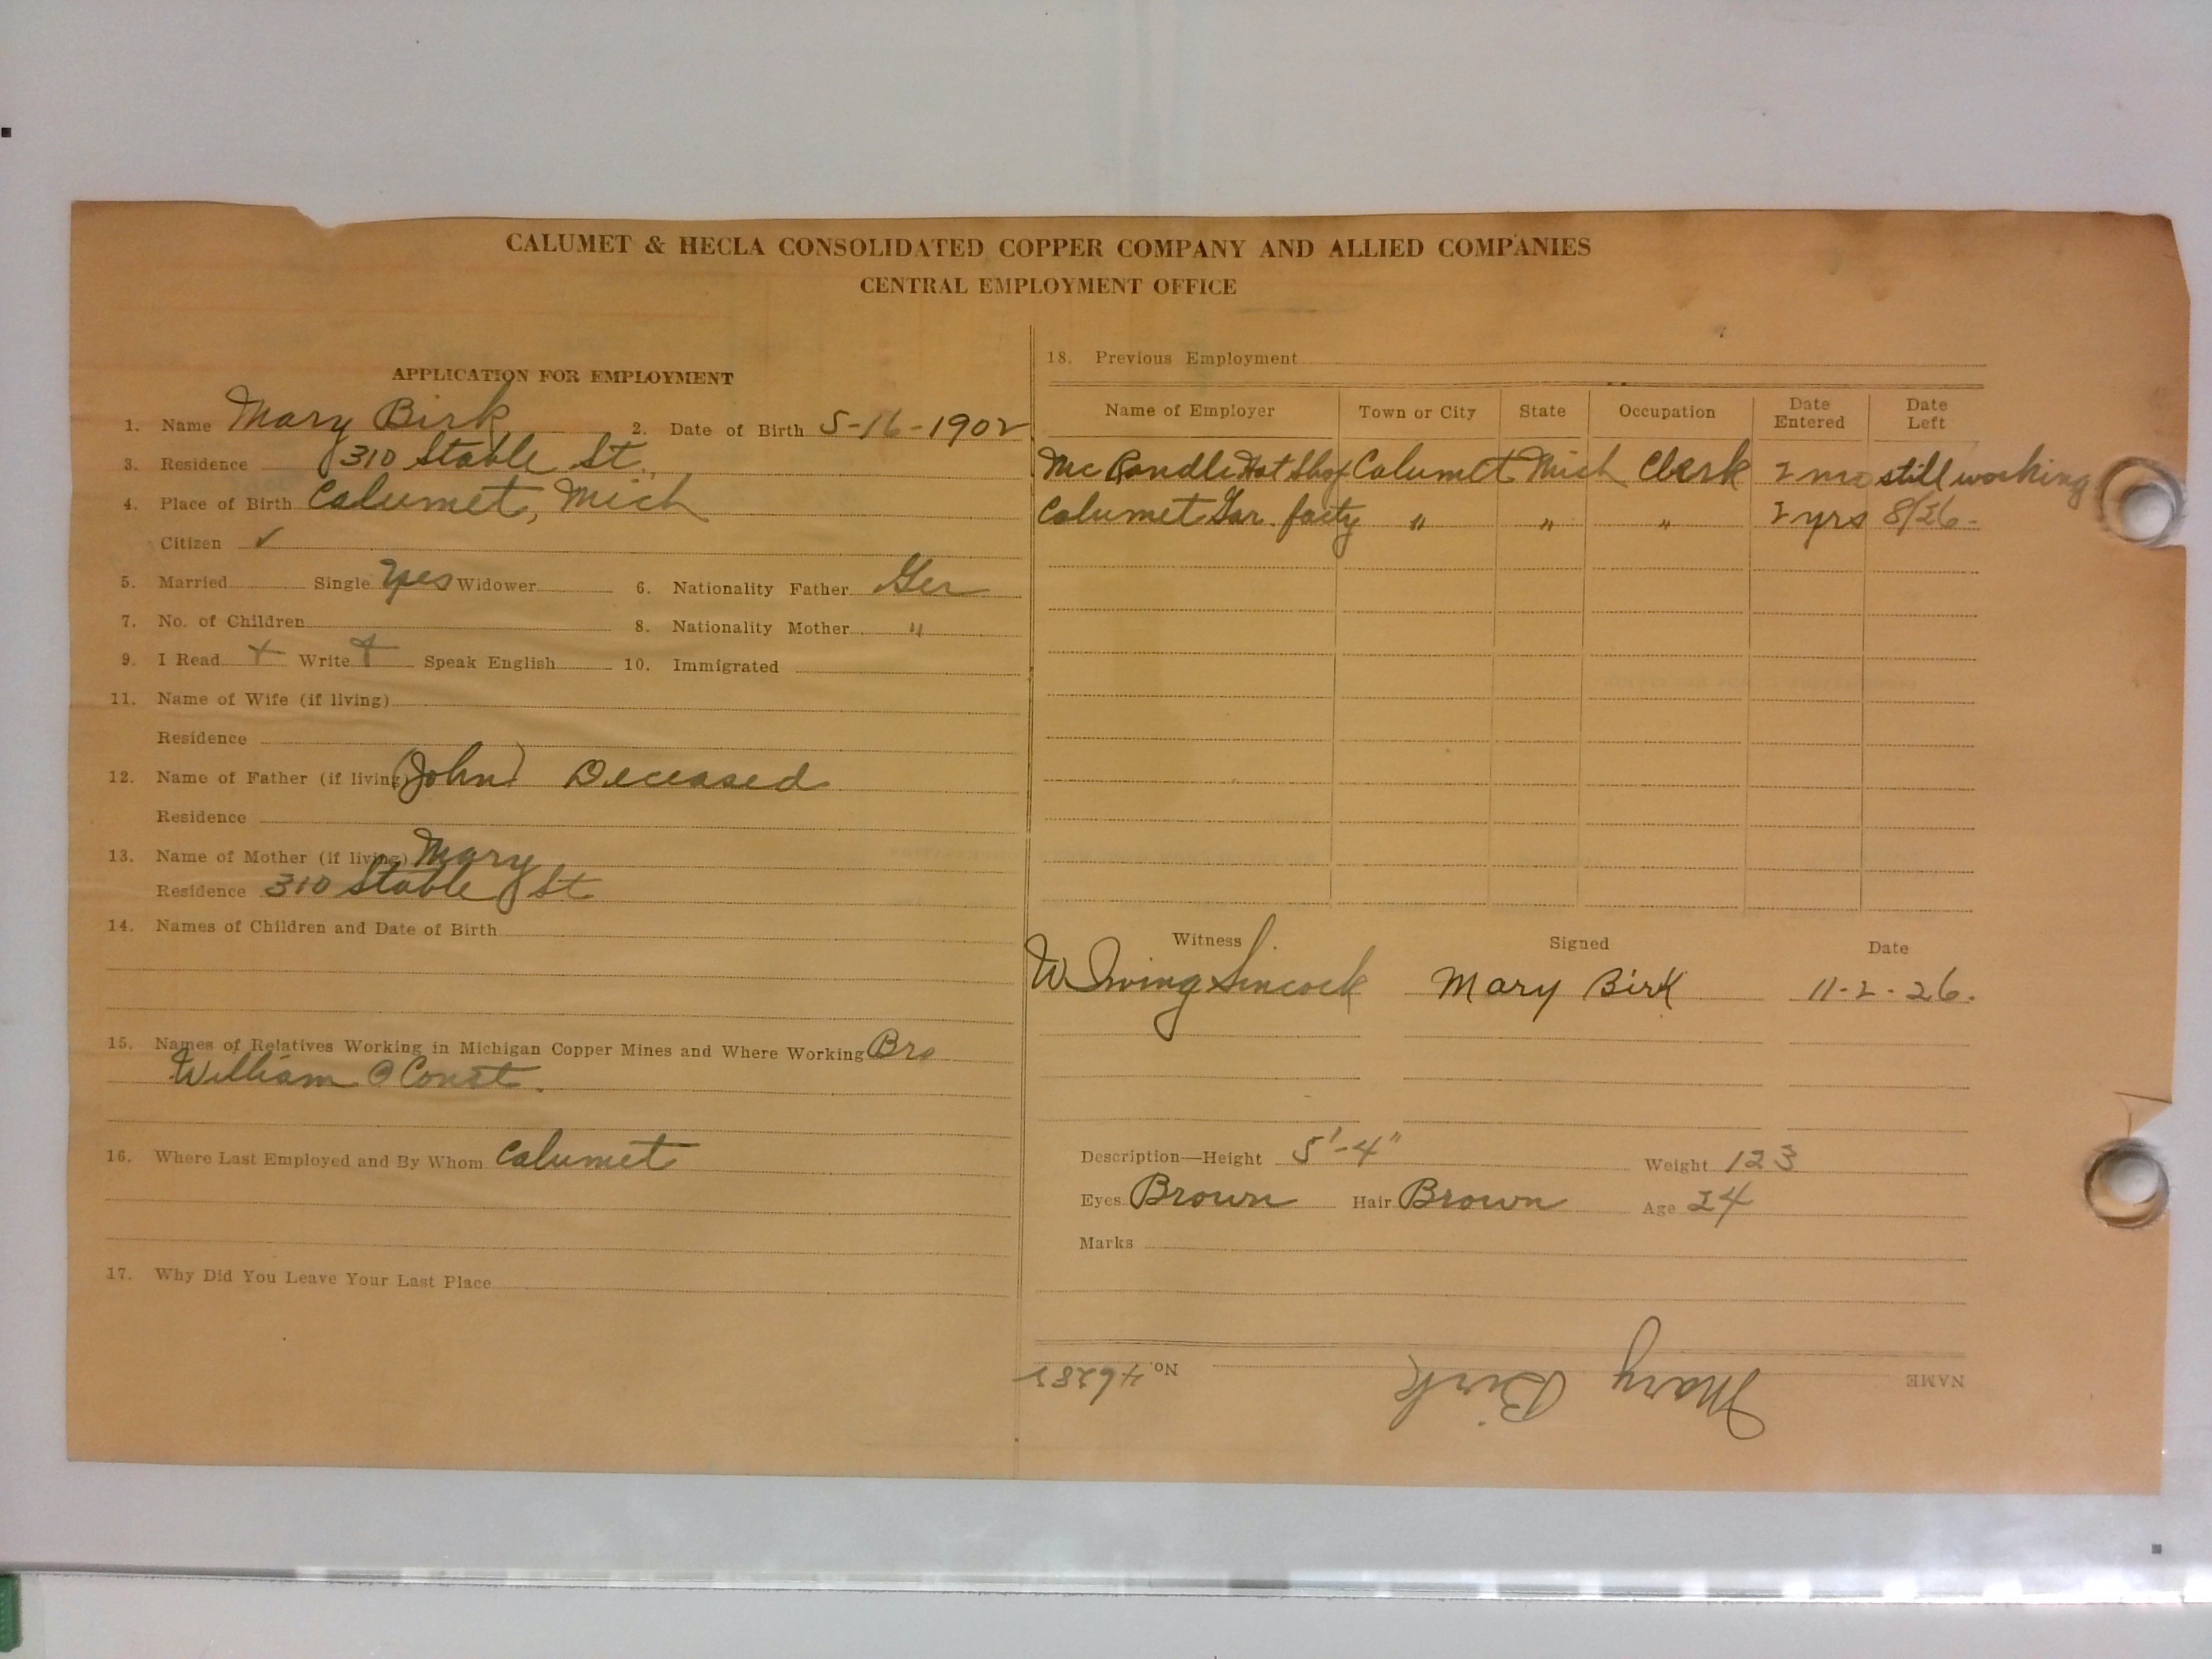 CALUMET & HECLA CONSOLIDATED COPPER COMPANY AND ALLIED COMPANIES
CENTRAL EMPLOYMENT OFFICE
APPLICATION FOR EMPLOYMENT
1. Name Mary Birk 2. Date of Birth 5-16-1902
3. Residence 310 Stable St.
4. Place of Birth Calumet, Mich
Citizen ✓
5. Married Single Yes Widower 6. Nationality Father Ger
7. No. of Children 8. Nationality Mother "
9. I Read + Write + Speak English 10. Immigrated
11. Name of Wife (if living)
Residence
12. Name of Father (if living) (John) Deceased
Residence
13. Name of Mother (if living) Mary
Residence 310 Stable St
14. Names of Children and Date of Birth
15. Names of Relatives Working in Michigan Copper Mines and Where Working Bro
William @ Const.
16. Where Last Employed and By Whom Calumet
17. Why Did You Leave Your Last Place
18. Previous Employment
Name of Employer Town or City State Occupation Date Entered Date Left
Mc Hat Shop Calumet Mich Clerk 2 mo still working
Calumet Gar. facty " " " 2 yrs 8/26-
Witness Signed Date
W Irving Sincock Mary Birk 11-2-26.
Description—Height 5'-4" Weight 123
Eyes Brown Hair Brown Age 24
Marks
NAME Mary Birk No. 46282